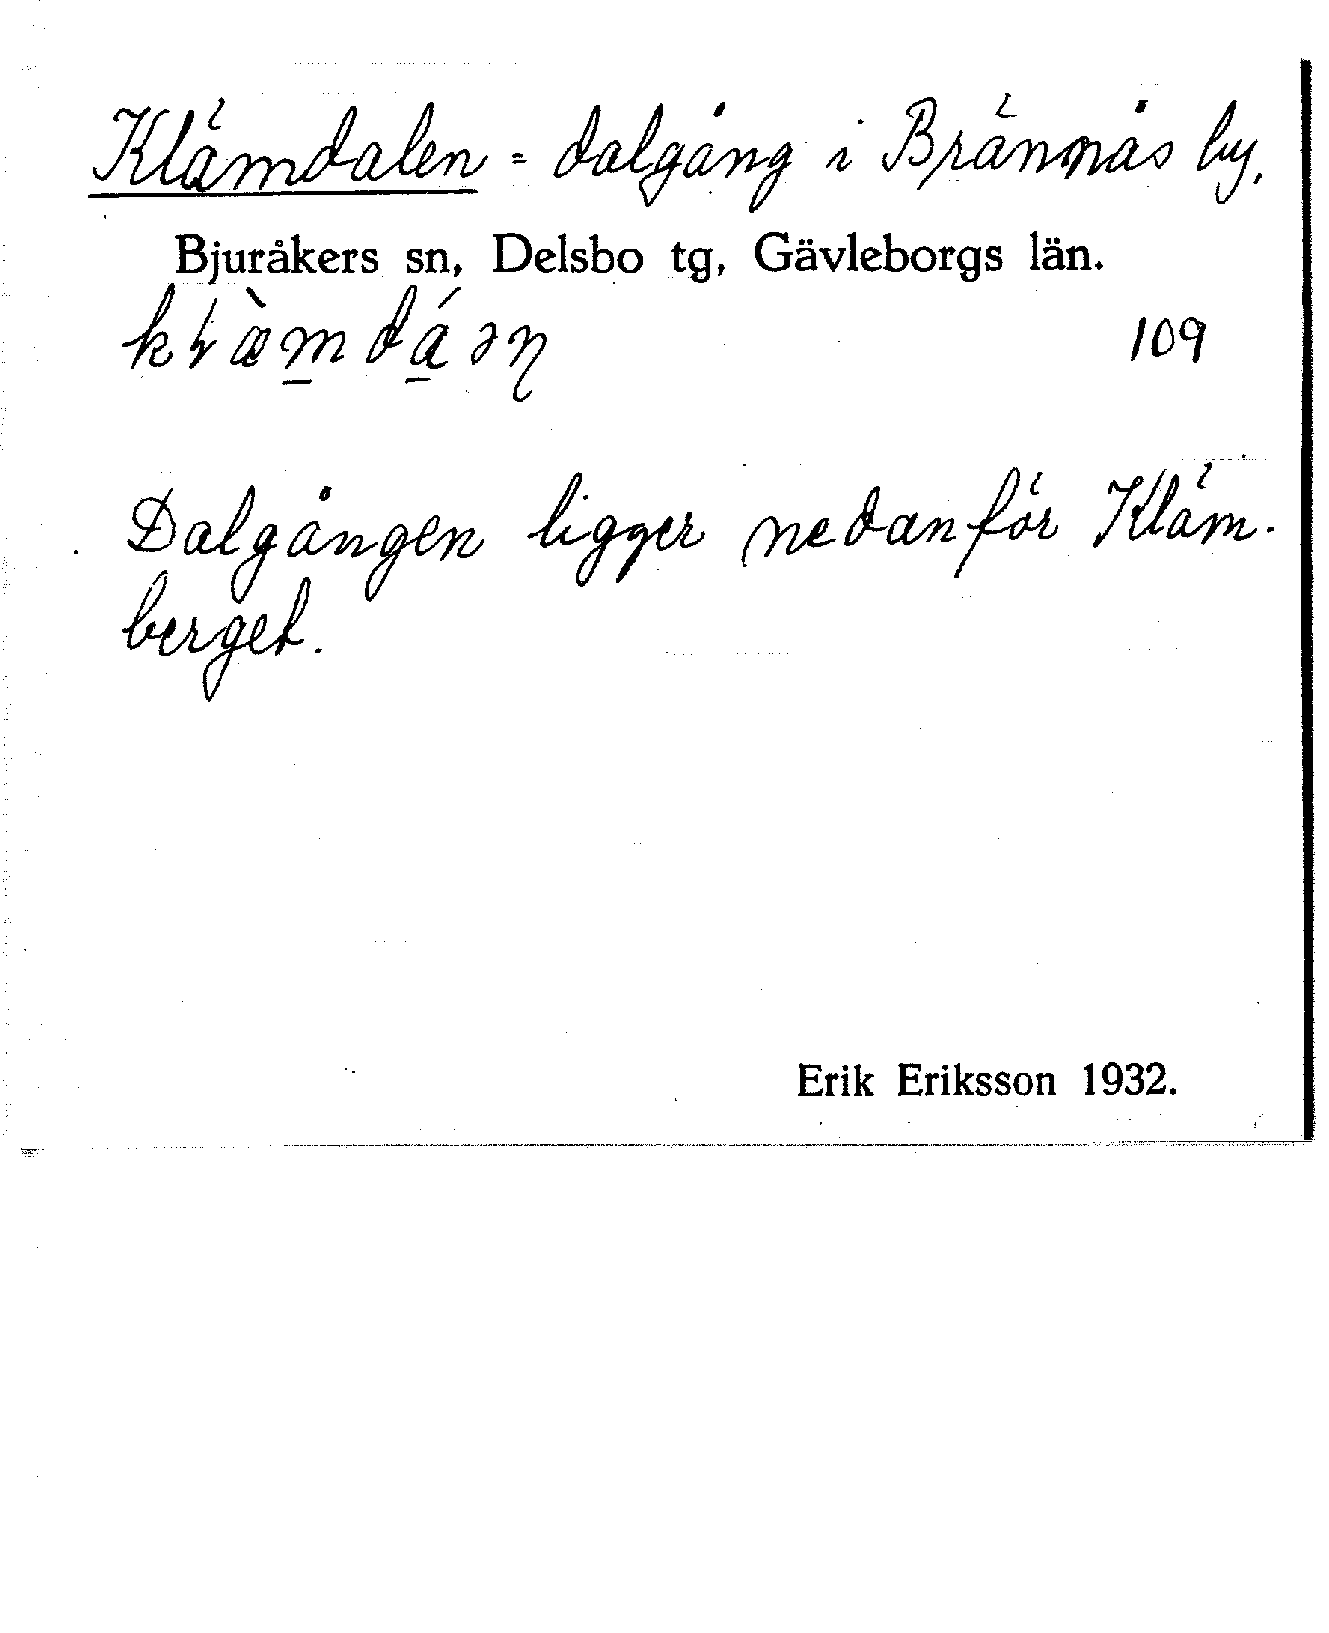 Klämdalen = dalgång i Brännås by.
Bjuråkers sn, Delsbo tg, Gävleborgs län.
109
Dalgången ligger nedanför Kläm-
berget.
Erik Eriksson 1932.